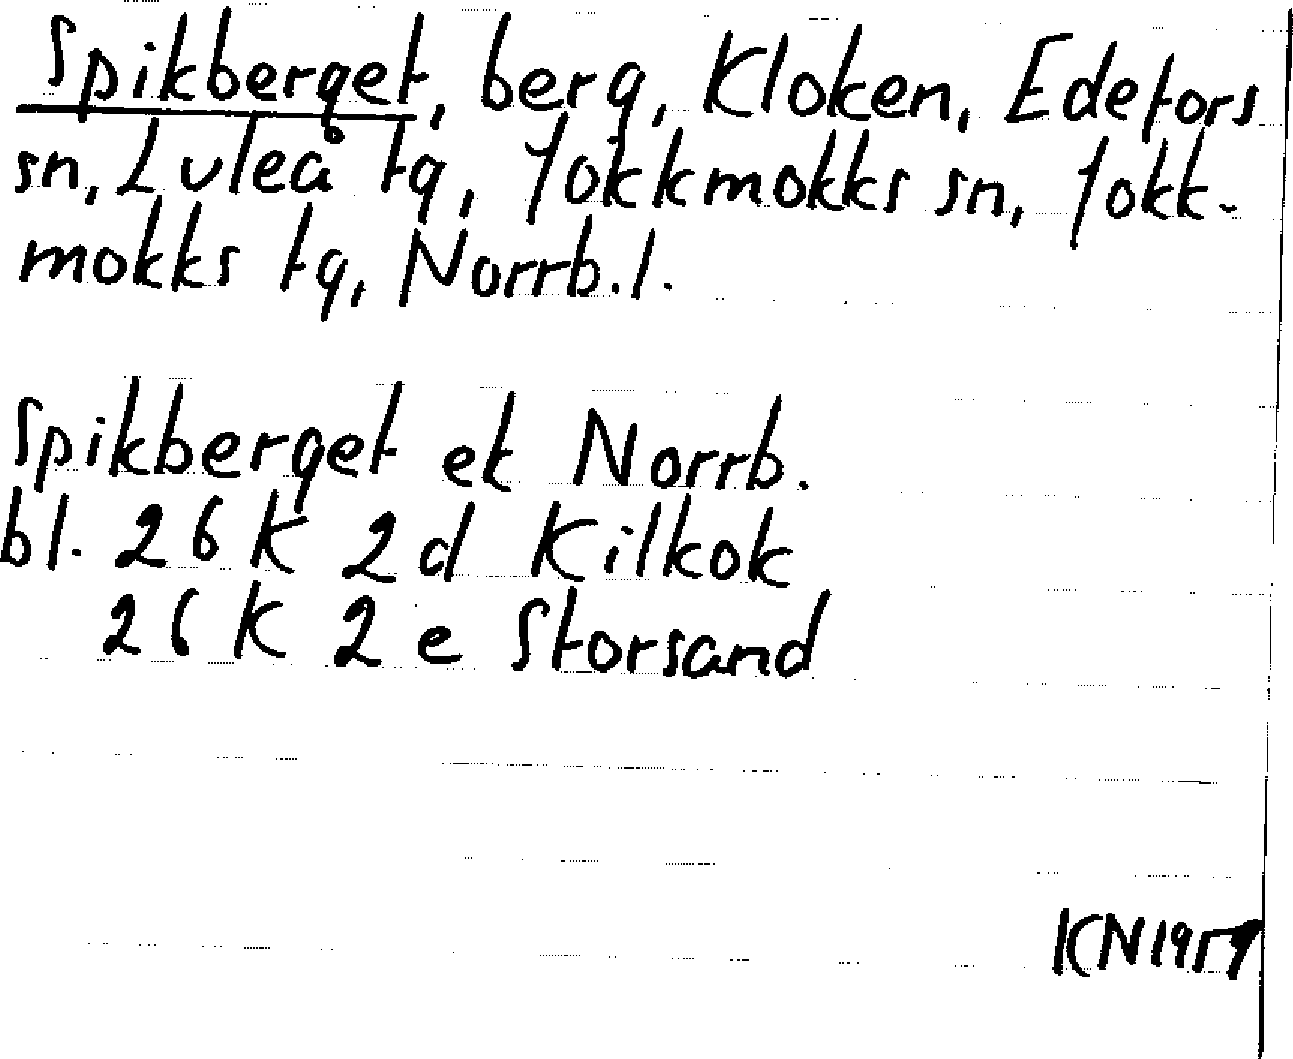 Spikberget, berg, Kloken, Edefors
sn, Luleå tg, Jokkmokks sn, Jokk-
mokks tg, Norrb.l.
Spikberget ek Norrb.
bl. 26 K 2d Kilkok
26 K 2e Storsand